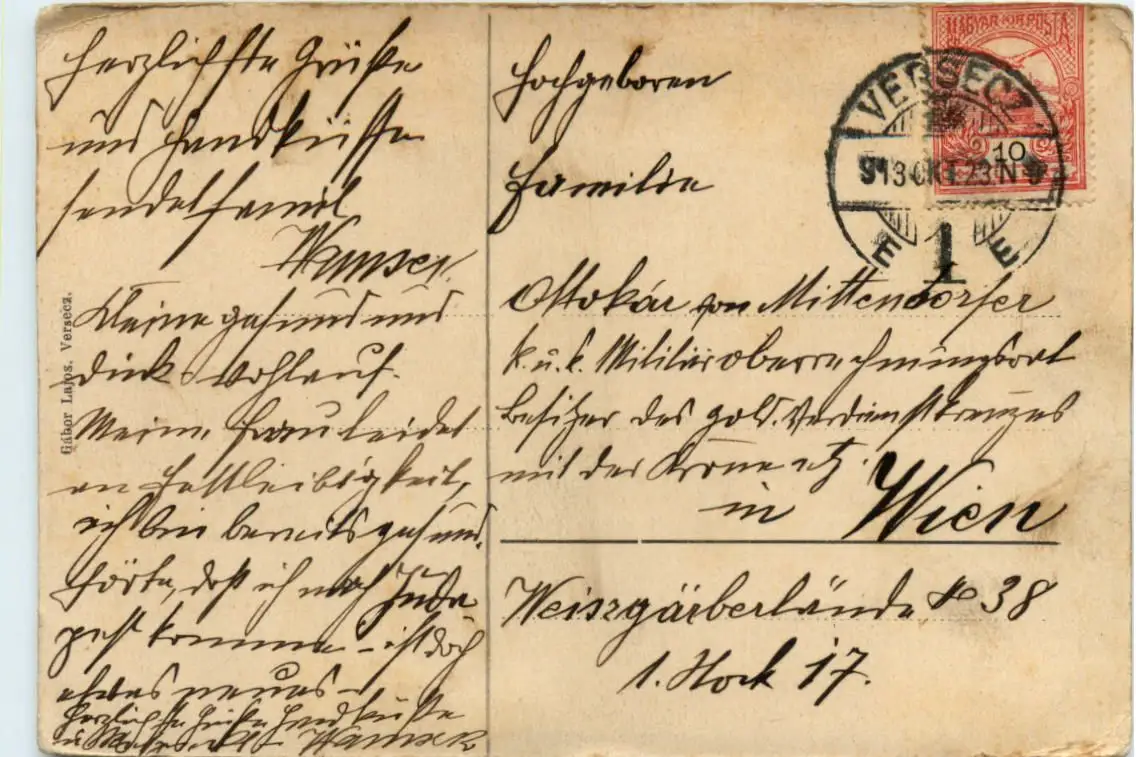 Herzlichste Grüße
und Handküsse
sendet Famil.
Kleine gesund und
dick wohlauf.
Meine Frau leidet
an Hartleibigkeit,
ich bin bereits gesund.
Hörte, daß ich nach Buda
pest komme – ist doch
etwas neues –
Herzlichste Grüße Handküsse
Gábor Lajos. Versecz.
Hochgeboren
Familie
Ottokár von Mittendorfer
k. u. k. Militäroberrechnungsrat
Besitzer des gold. Verdienstkreuzes
mit der Krone etz.
in Wien
Weiszgärberlände No 38
1. Stock 17.
MAGYAR KIR. POSTA
10
VERSECZ
913 OKT. 23. N
1